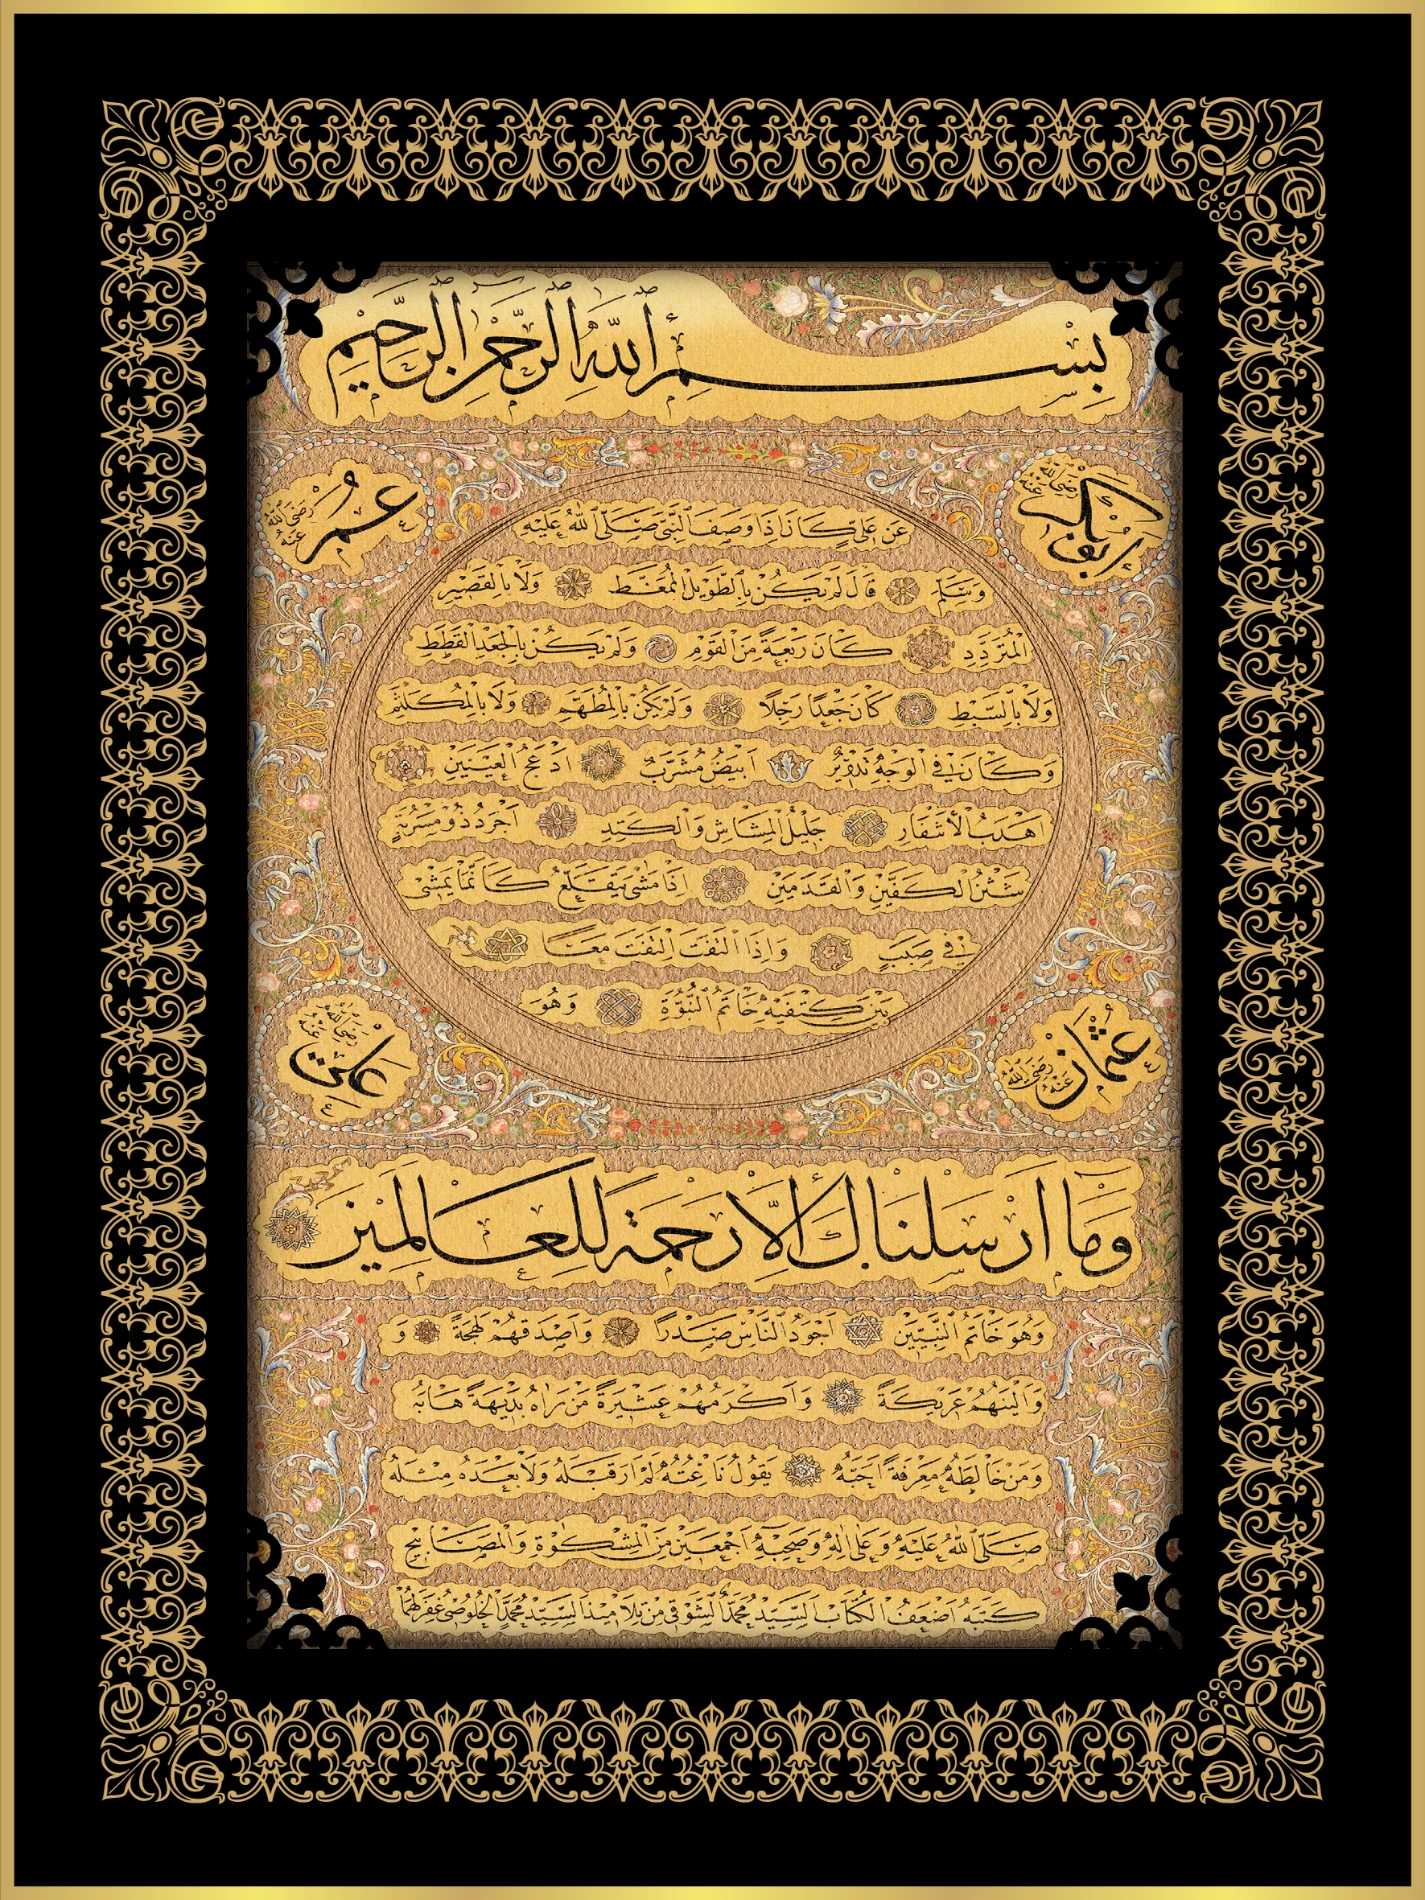 بسم الله الرحمن الرحيم
ابوبكر رضي الله عنه
عمر رضي الله عنه
عن علي كان اذا وصف النبي صلى الله عليه
وسلم قال لم يكن بالطويل الممغط ولا بالقصير
المتردد كان ربعة من القوم ولم يكن بالجعد القطط
ولا بالسبط كان جعدا رجلا ولم يكن بالمطهم ولا بالمكلثم
وكان في الوجه تدوير ابيض مشرب ادعج العينين
اهدب الأشفار جليل المشاش والكتد اجرد ذو مسربة
شثن الكفين والقدمين اذا مشى يتقلع كانما يمشي
في صبب واذا التفت التفت معا
بين كتفيه خاتم النبوة وهو
عثمان رضي الله عنه
علي رضي الله عنه
وما ارسلناك إلا رحمة للعالمين
وهو خاتم النبيين اجود الناس صدرا واصدقهم لهجة و
والينهم عريكة واكرمهم عشيرة من راه بديهة هابه
ومن خالطه معرفة احبه يقول ناعته لم ار قبله ولا بعده مثله
صلى الله عليه وعلى اله وصحبه اجمعين من المشكوة والمصابيح
كتبه اضعف الكتاب السيد محمد الشوقي من تلاميذ السيد محمد الخلوصي غفر لهما